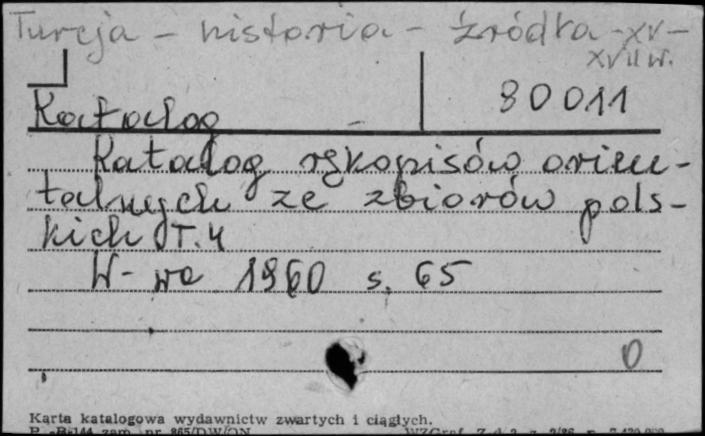 Turcja - historia - źródła - XV -
XVII w.
80011
Katalog
Katalog rękopisów orien-
talnych ze zbiorów pols-
kich T. 4
W-wa 1960 s. 65
0
Karta katalogowa wydawnictw zwartych i ciągłych.
zam. nr 865/DW/ON